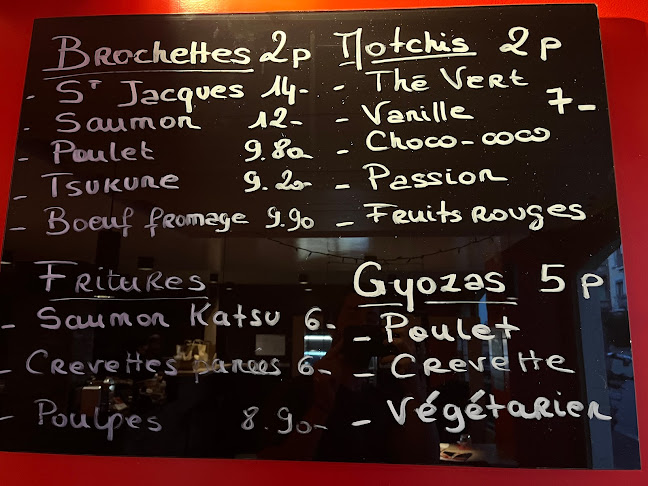 Brochettes 2p
- St Jacques 14-
- Saumon 12-
- Poulet 9.80
- Tsukune 9.20-
- Boeuf fromage 9.90
Motchis 2p
- Thé Vert
- Vanille 7-
- Choco-coco
- Passion
- Fruits rouges
Fritures
- Saumon Katsu 6-
- Crevettes panées 6-
- Poulpes 8.90-
Gyozas 5p
- Poulet
- Crevette
- Végétarien